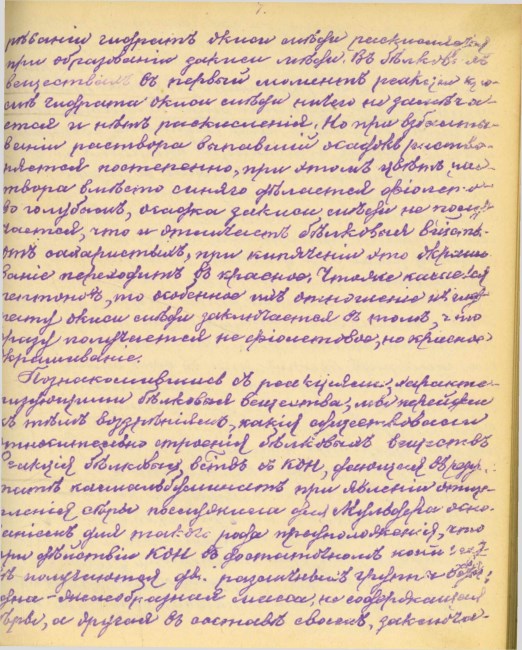 7.
гидратъ окиси мѣди раскисляется
при образованіи закиси мѣди. Въ бѣлковыхъ
веществахъ въ первый моментъ реакціи
гидрата окиси мѣди ничего не замѣча-
ется и нѣтъ раскисленія. Но при взбалты-
ваніи раствора выпавшій осадокъ раство-
ряется постепенно, при этомъ цвѣтъ рас-
твора вмѣсто синяго дѣлается фіолето-
во голубымъ, осадка закиси мѣди не полу-
чается, что и отличаетъ бѣлковыя вещества
отъ сахаристыхъ, при кипяченіи это окраши-
ваніе переходитъ въ красное. Что же касается
пептоновъ, то особенное ихъ отношеніе къ гид-
рату окиси мѣди заключается въ томъ, что
сразу получается не фіолетовое, но красное
окрашиваніе.
Познакомившись съ реакціями, характе-
ризующими бѣлковыя вещества, мы перейдемъ
къ тѣмъ воззрѣніямъ, какія существовали
относительно строенія бѣлковыхъ веществъ
Реакція бѣлковыхъ вствъ съ КОН, дающая въ резуль-
татѣ при явленіи отщеп-
ленія сѣры послужила для Мульдера осно-
ваніемъ для такого рода предположенія, что
при дѣйствіи КОН въ достаточномъ
получаются два различныхъ
одна - масса, не содержащая
сѣры, а другая въ составѣ своемъ, заключа-